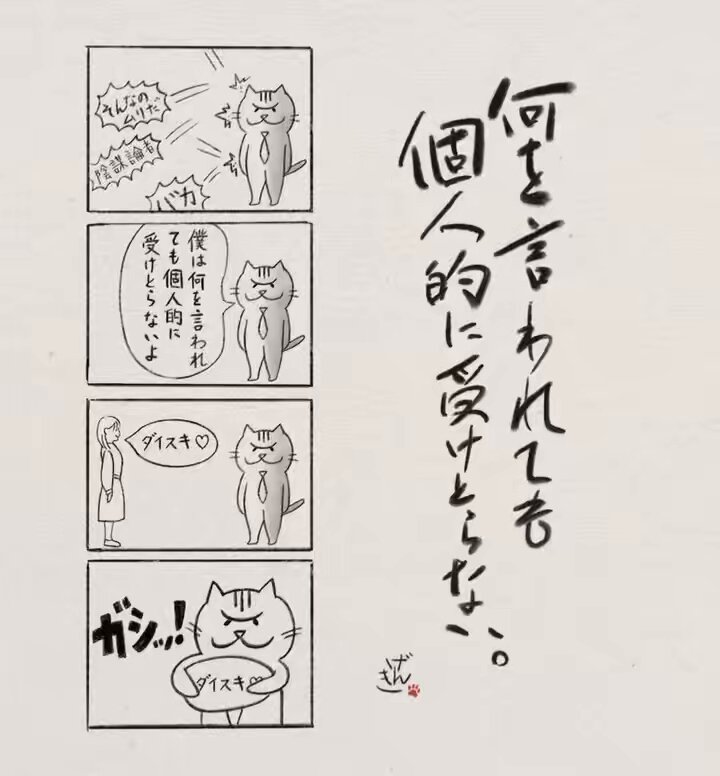 何を言われても
個人的に受けとらない。
げん
き
そんなの
ムリだ
陰謀論者
バカ
僕は何を言われ
ても個人的に
受けとらないよ
ダイスキ♡
ガシッ!
ダイスキ♡